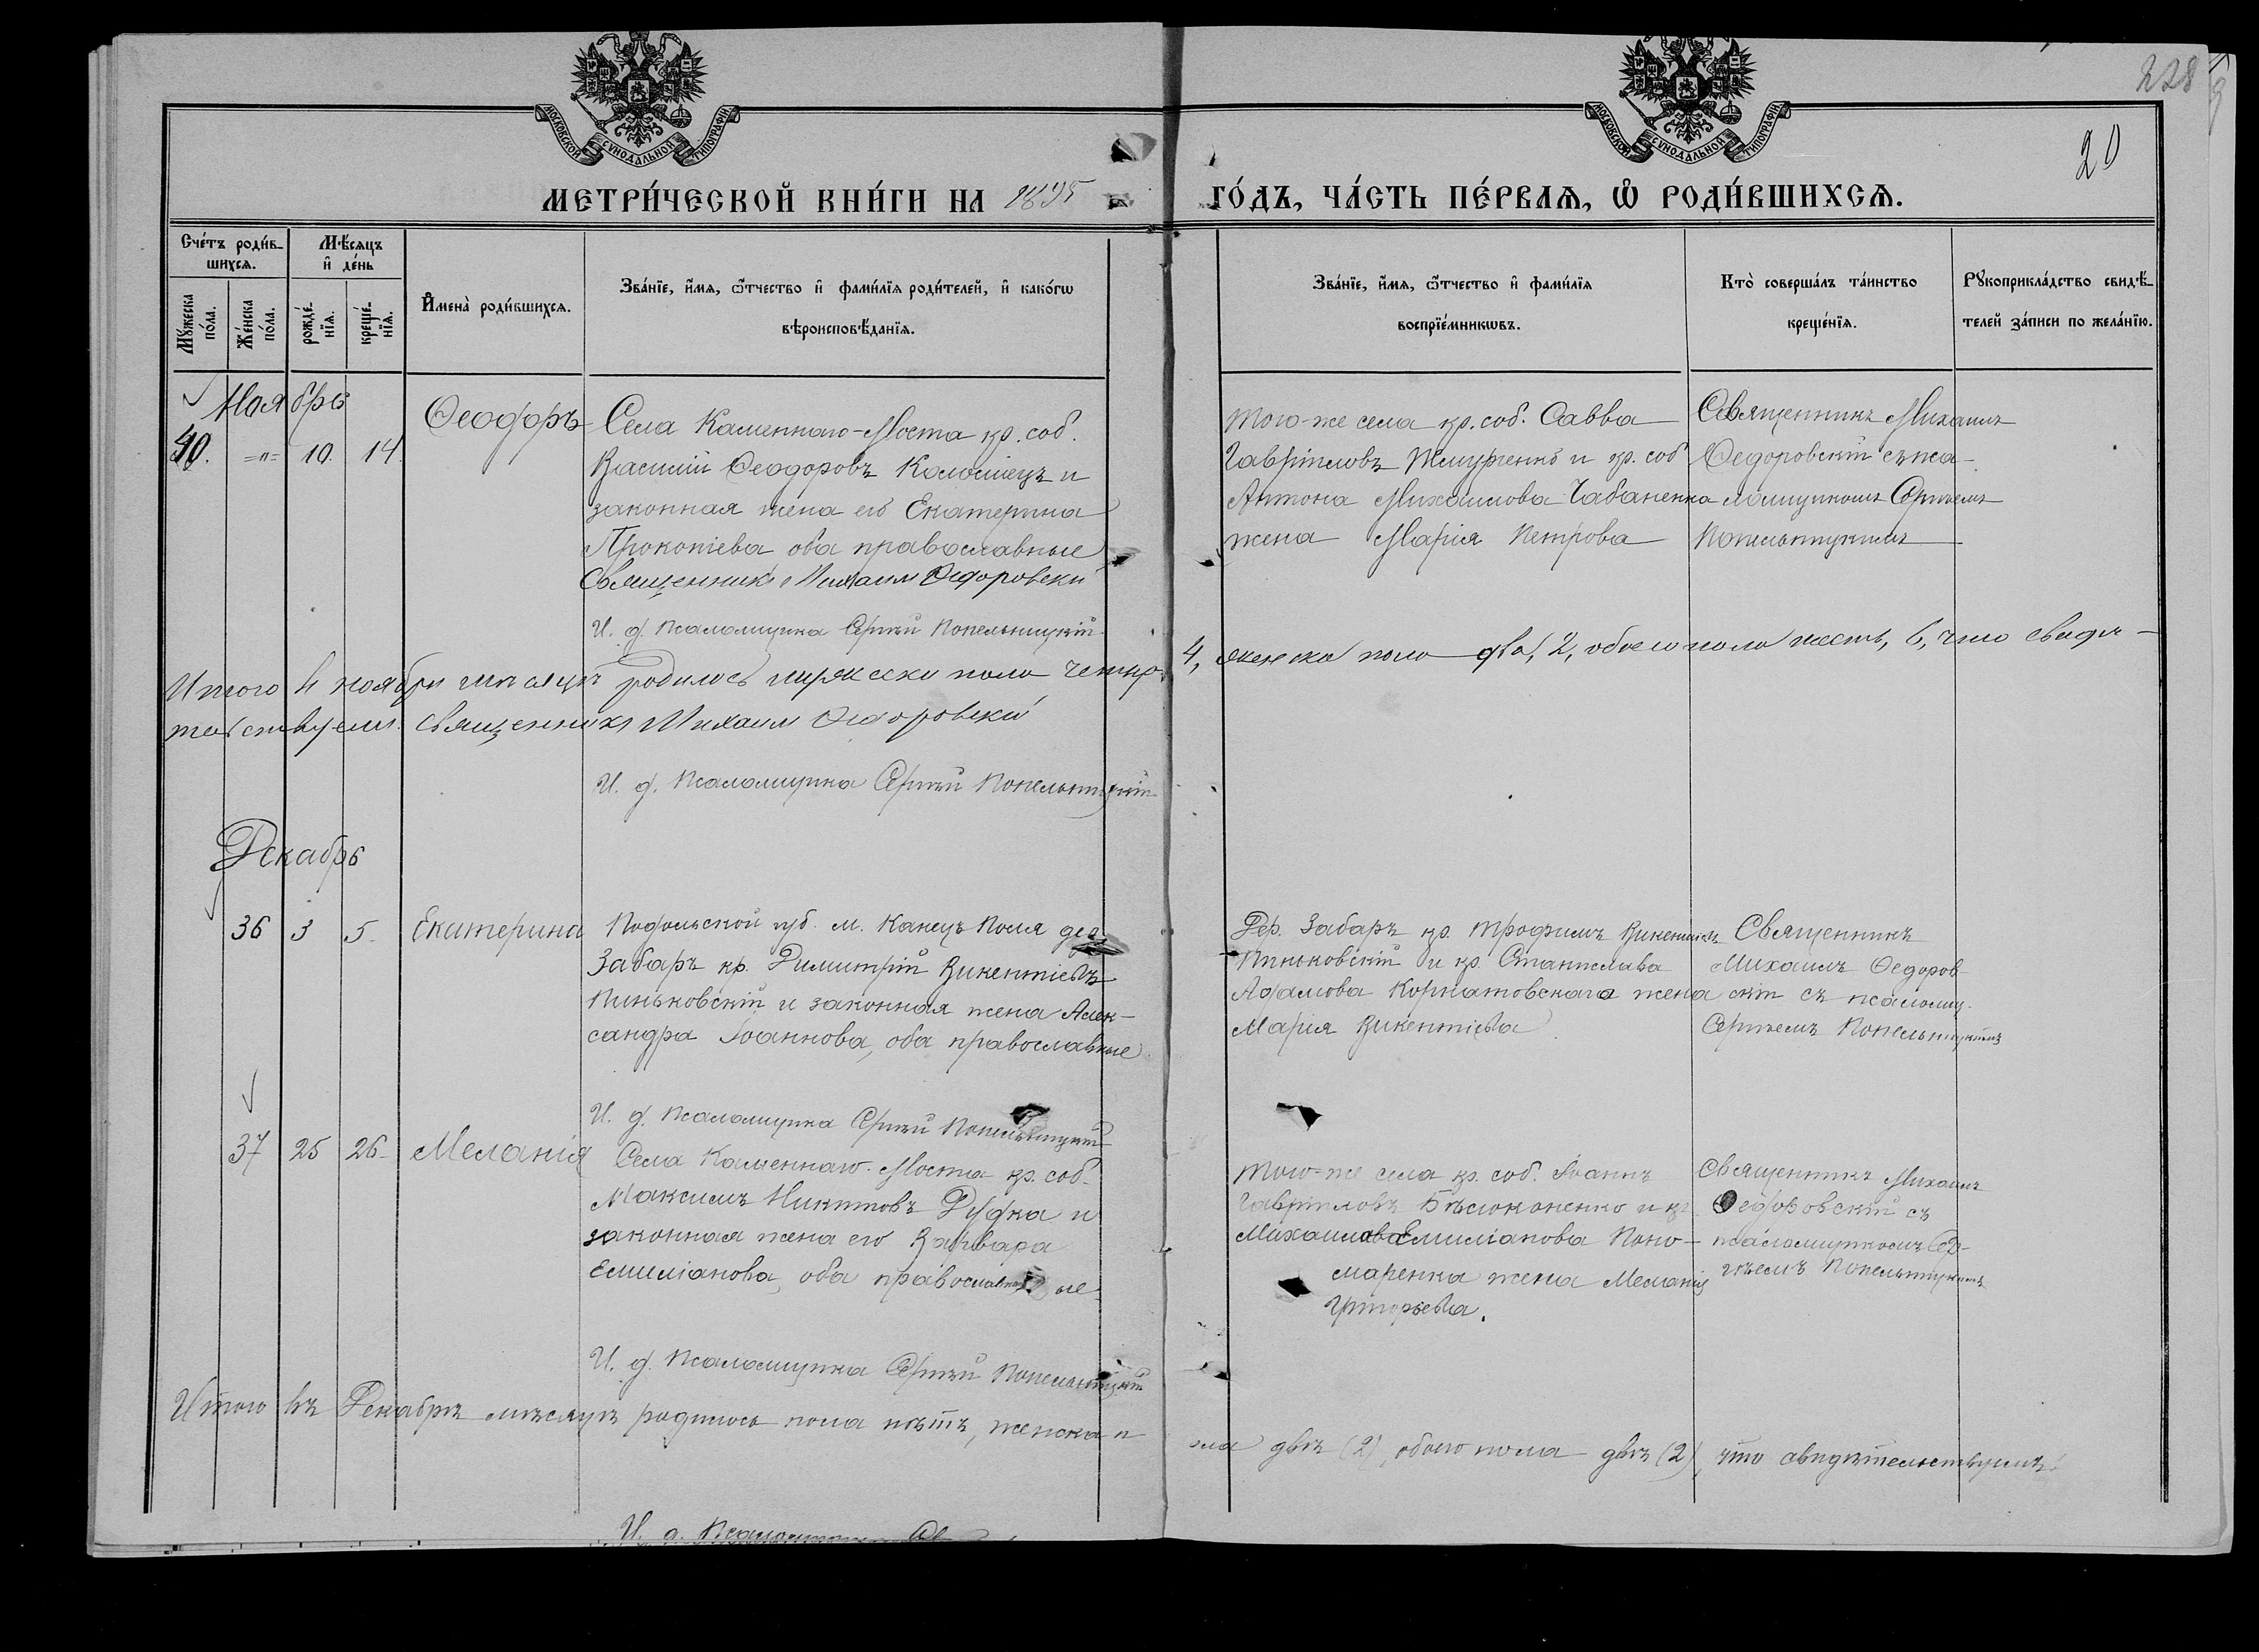 МОСКОВСКОЙ СѴНОДАЛЬНОЙ ТИПОГРАФІИ
МОСКОВСКОЙ СѴНОДАЛЬНОЙ ТИПОГРАФІИ
228
20
МЕТРИ́ЧЕСКОЙ КНИ́ГИ НА 1895
ГО́ДЪ, ЧА́СТЬ ПЕ́РВАѦ, Ѡ҆ РОДИ́ВШИХСѦ.
Сче́тъ роди́в-
шихсѧ.
Мꙋ́жеска по́ла.
Же́нска по́ла.
Мѣ́сѧцъ
и҆ де́нь
рожде́-
нїѧ.
креще́-
нїѧ.
И҆мена̀ роди́вшихсѧ.
Зва́нїе, и҆́мѧ, ѻ҆́тчество и҆ фами́лїѧ роди́телей, и҆ како́гѡ
вѣроисповѣ́данїѧ.
Зва́нїе, и҆́мѧ, ѻ҆́тчество и҆ фами́лїѧ
воспрїе́мникѡвъ.
Кто̀ соверша́лъ та́инство
креще́нїѧ.
Рꙋкоприкла́дство свидѣ́-
телей за́писи по жела́нїю.
Ноябрь
40. =„= 10. 14.
Ѳеодоръ
Села Каменнаго-Моста кр. соб.
Василій Ѳеодоровъ Коломіецъ и
законная жена его Екатерина
Прокопіева оба православные
Священникъ Михаил Ѳедоровскій
И. д. Псаломщика Сергѣй Попельницкій
Того-же села кр. соб. Савва
Гавріиловъ Жмурченко и кр. соб
Антона Михаилова Чабаненка
жена Марія Петрова
Священникъ Михаилъ
Ѳедоровскій съ пса-
ломщикомъ Сергѣемъ
Попельницкимъ
Итого в ноябри мѣсяцѣ родилось мужеска пола четыре 4, женска пола два, 2, обоего пола шесть, 6, что свидѣ-
тельствуемъ. Священникъ Михаил Ѳедоровскій
И. д. Псаломщика Сергѣй Попельницкій
Декабрь
36 3 5. Екатерина
Подольской губ. м. Конецъ Поля дер.
Забаръ кр. Димитрій Викентіевъ
Пиньковскій и законная жена Алек-
сандра Іоаннова, оба православные
И. д. Псаломщика Сергѣй Попельницкій
Дер. Забаръ кр. Трофимъ Викентіевъ
Пиньковскій и кр. Станислава
Адамова Корнатовскаго жена
Марія Викентіева
Священникъ
Михаилъ Ѳедоров-
скій съ псаломщ.
Сергѣемъ Попельницкимъ
37 25 26. Меланія
Села Каменнаго-Моста кр. соб.
Максимъ Никитовъ Дудка и
законная жена его Варвара
Емиліанова, оба православные
И. д. Псаломщика Сергѣй Попельницкій
Того-же села кр. соб. Іоаннъ
Гавріиловъ Бѣлоконенко и кр.
Михаила Емиліанова Поно-
маренка жена Меланія
Григорьева.
Священникъ Михаилъ
Ѳедоровскій съ
псаломщикомъ Сер-
гѣемъ Попельницкимъ
Итого въ Декабрѣ мѣсяцѣ родилось пола нѣтъ, женска пола двѣ (2), обоего пола двѣ (2), что свидѣтельствуемъ:
И. д. Псаломщика